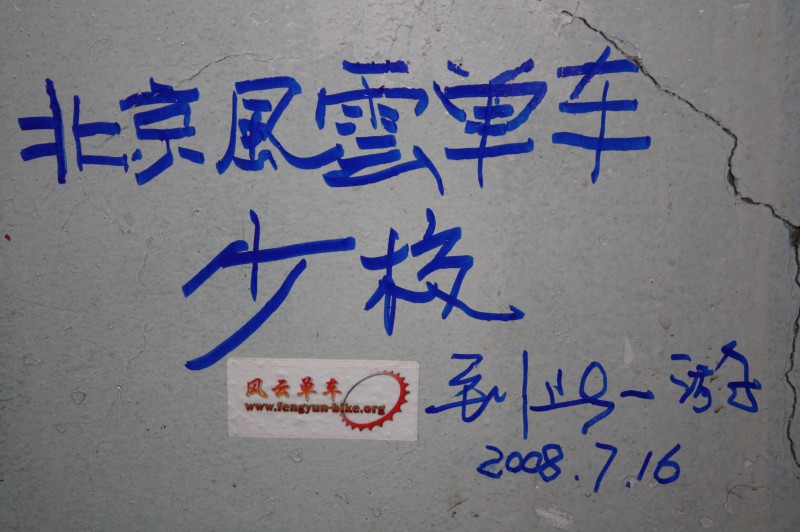 北京風雲单车
少校
风云单车
www.fengyun-bike.org
到此一游
2008.7.16